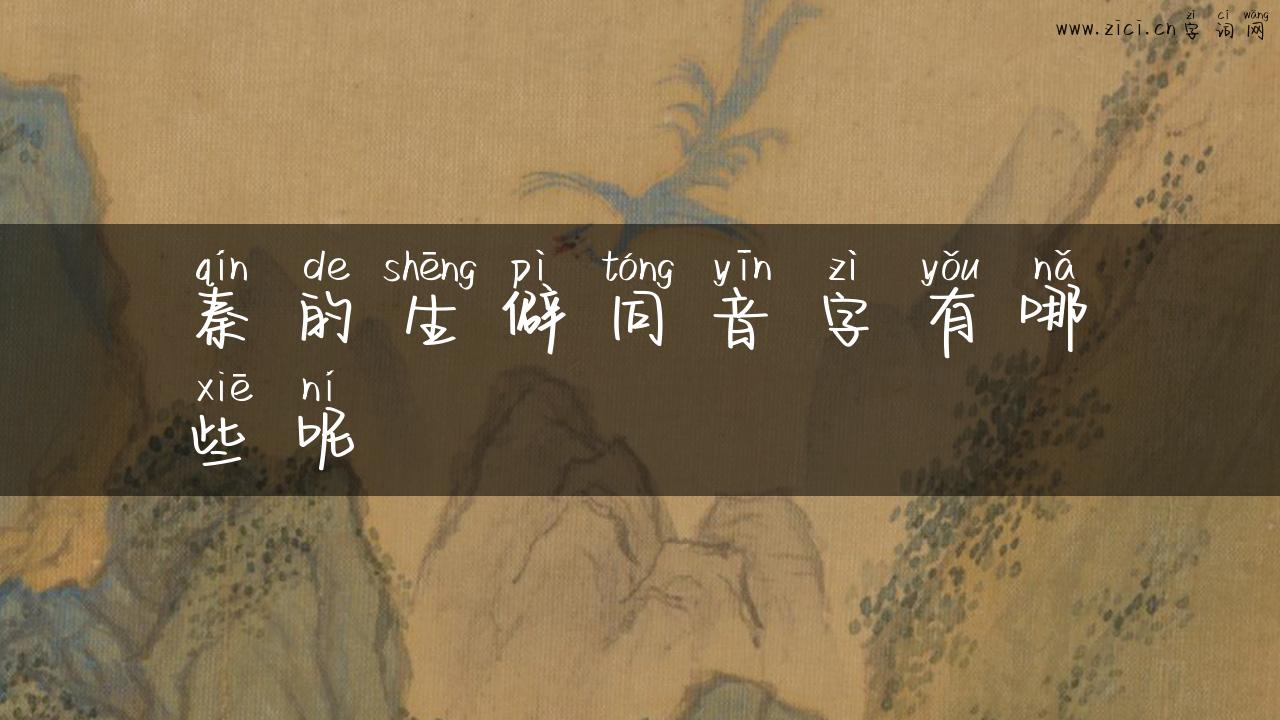 zì cí wǎng
www.zici.cn字词网
qín de shēng pì tóng yīn zì yǒu nǎ
秦的生僻同音字有哪
xiē ní
些呢